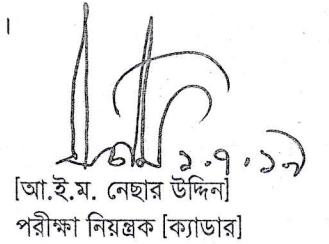 ।
১.৭.১৭
[আ.ই.ম. নেছার উদ্দিন]
পরীক্ষা নিয়ন্ত্রক [ক্যাডার]